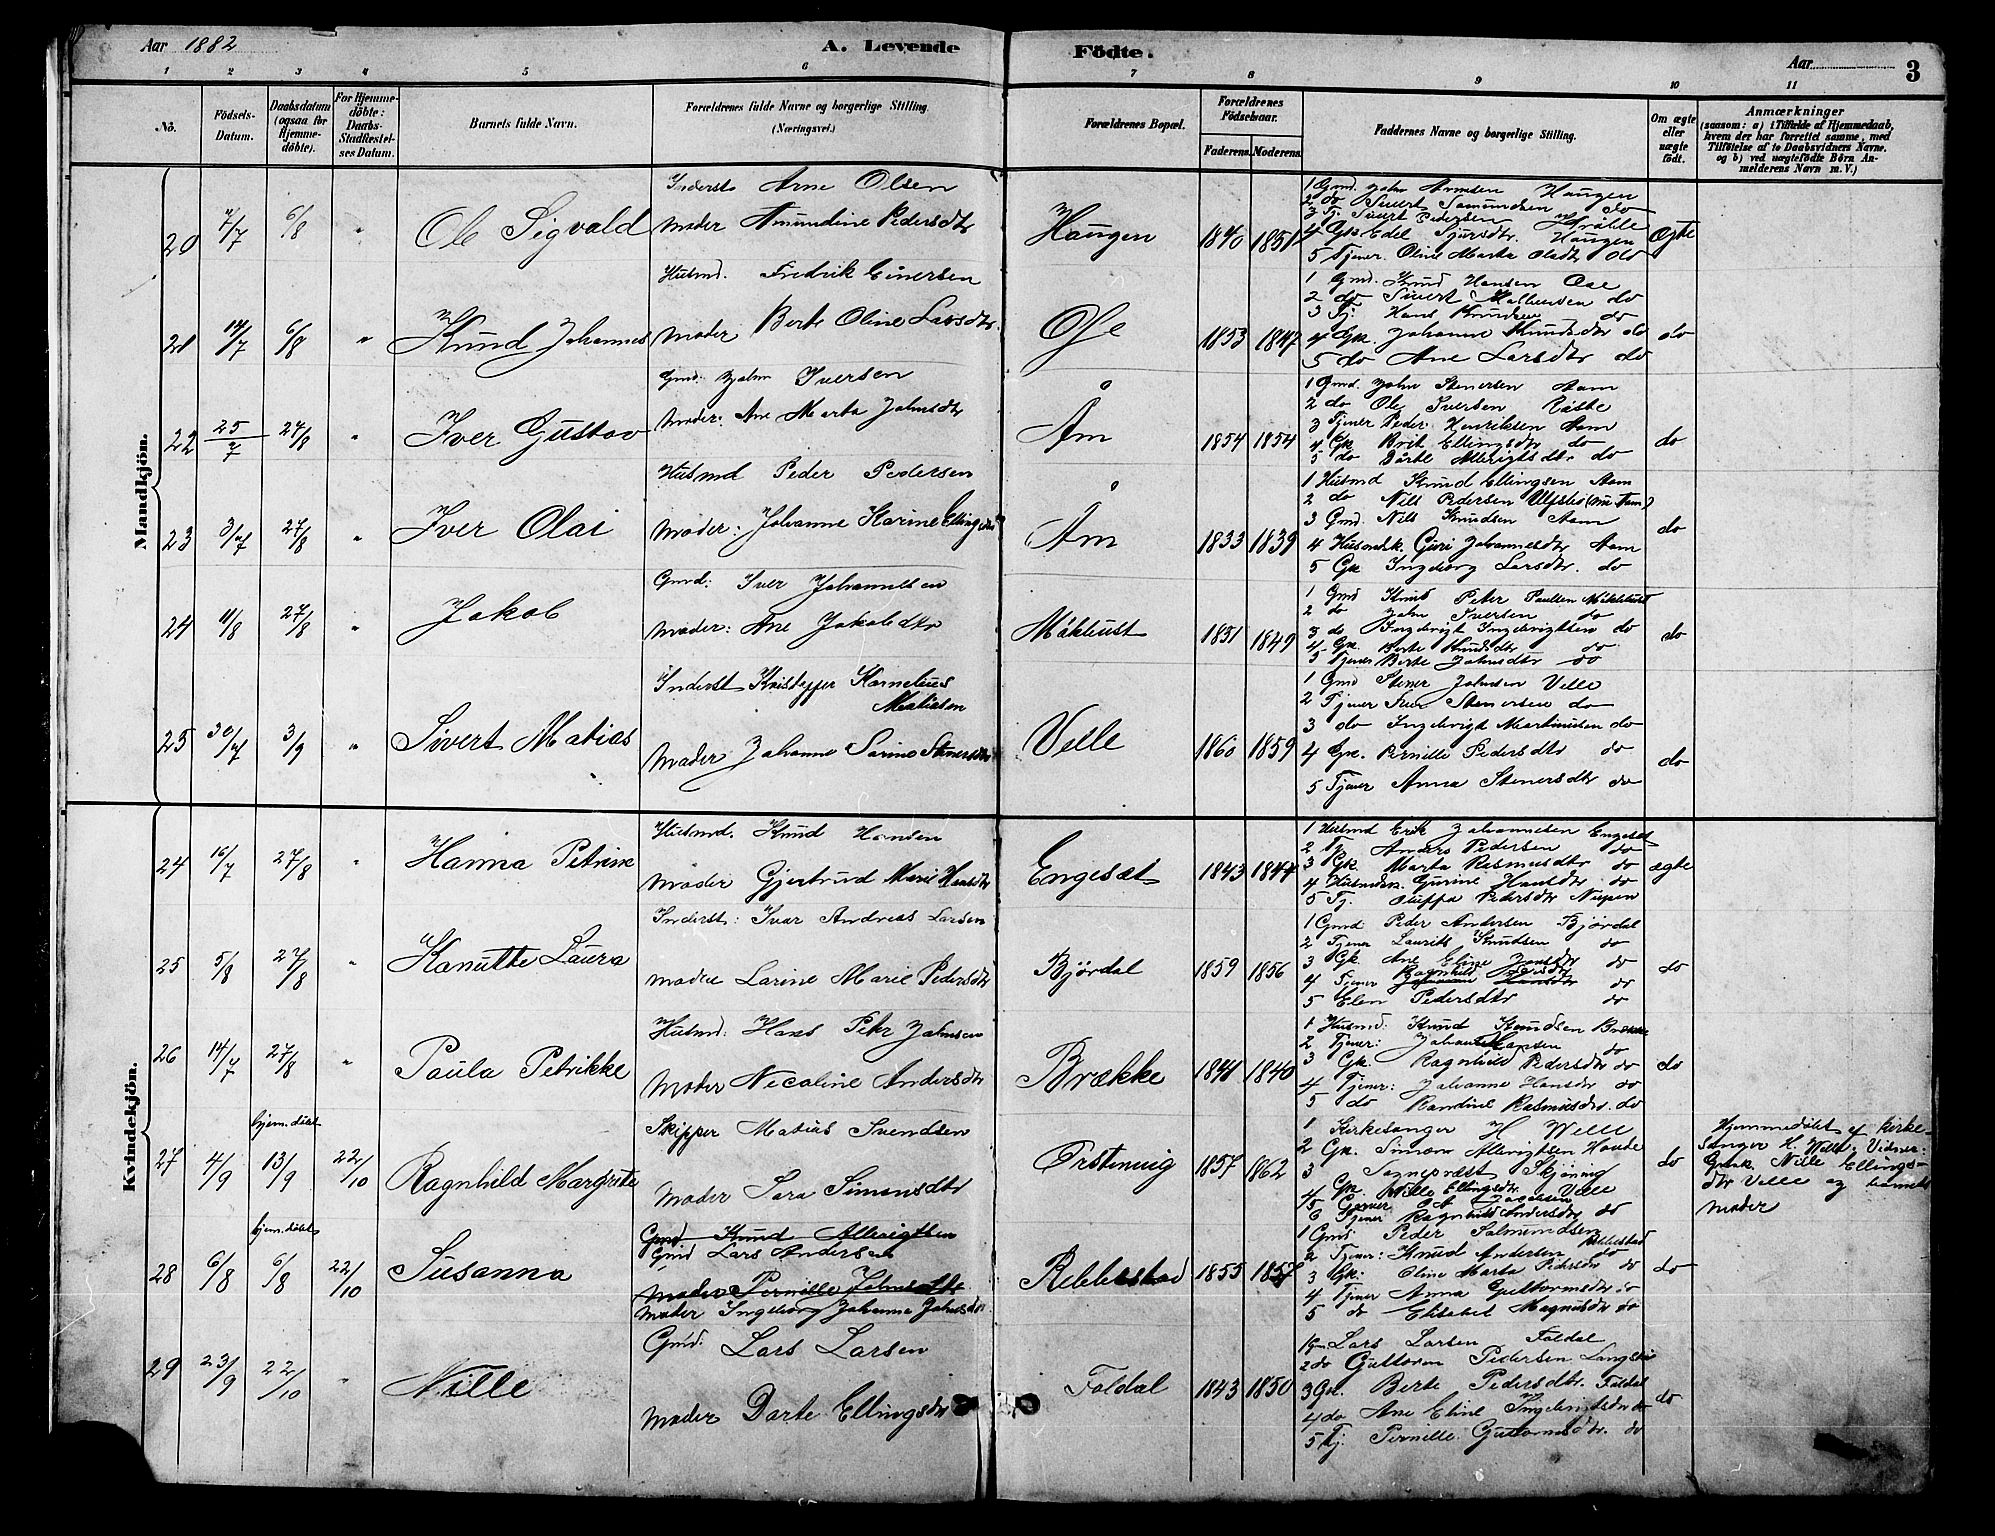 Aar 1882
A. Levende Födte.
Aar
3
1 2 3 4 5 6 7 8 9 10 11
No.
Födsels-Datum.
Daabsdatum (ogsaa for Hjemme-döbte).
For Hjemme-döbte: Daabs-Stadfæstel-ses Datum.
Barnets fulde Navn.
Forældrenes fulde Navne og borgerlige Stilling. (Næringsvei.)
Forældrenes Bopæl.
Forældrenes Födselsaar.
Faderens. Moderens.
Faddernes Navne og borgerlige Stilling.
Om ægte eller uægte födt.
Anmærkninger
(saasom: a) i Tilfælde af Hjemmedaab, hvem der har forrettet samme, med Tilföielse af to Daabsvidners Navne. og b) ved uægtefödte Börn An-melderens Navn m. V.)
Mandkjön.
20 7/7 6/8 " Ole Sigvald
Inderst Arne Olsen
Moder Amundine Pedersdtr
Haugen 1840 1851
1 Gmd. John Arnesen Haugen
2 do Sivert Samundsen do
3 Tj. Sivert Pedersen
4 Gk Edel Sjursdtr. Haugen
5 Tjener Oline Marta Olsdtr do
Ægte
21 14/7 6/8 " Knud Johannes
Husmd. Fredrik Einersen
Moder Berte Oline Larsdtr.
Ose 1853 1847
1 Gmd. Knud Hansen Ose
2 do Sivert Mathiasen do
3 Tj. Hans Knudsen do
4 Gk. Johanne Knudsdtr do
5 do Ane Larsdtr do
do
22 25/7 27/8 " Iver Gustav
Gmd. John Iversen
Moder: Ane Marta Johnsdtr
Åm 1854 1854
1 Gmd. John Stenersen Aam
2 do Ole Iversen
3 Tjener Peder Henriksen Aam
4 Gk Brit Ellingsdtr do
5 do Dårte Allerigtsdtr. do
do
23 3/7 27/8 " Iver Olai
Husmd Peder Pedersen
Moder: Johanne Karine Ellingsdtr
Åm 1833 1839
1 Husmd Knud Ellingsen Aam
2 do Nils Pedersen Ulfsbø (nu Aam)
3 Gmd. Nils Knudsen Aam
4 Husmdsk. Guri Johannesdtr Aam
5 Gk Ingeborg Larsdtr. do
do
24 11/8 27/8 " Jakob
Gmd: Iver Johannesen
Moder: Ane Jakobsdtr
Måkleust 1851 1849
1 Gmd Knud Peter Paulsen Måkleust
2 do John Iversen do
3 do Ingebrigt Ingebrigtsen do
4 Gk. Berte Knudsdtr do
5 Tjener Berte Johnsdtr do
do
25 30/7 3/9 " Sivert Matias
Inderst Kristoffer Kornelius
Matiasen
Moder Johanne Sarine Stenersdtr
Velle 1860 1859
1 Gmd Stener Johnsen Velle
2 Tjener Iver Stenersen do
3 do Ingebrigt Martinusen do
4 Gk. Pernille Pedersdtr do
5 Tjener Anna Stenersdtr do
do
Kvindekjön.
24 16/7 27/8 " Hanna Petrine
Husmd. Knud Hansen
Moder Gjertrud Marie Hansdtr
Engeset 1843 1844
1 Husmd Erik Johannesen Engeset
2 Tj Anders Pedersen do
3 Gk Marta Rasmusdtr do
4 Husmdsk. Gurine Hansdtr do
5 Tj. Oluffa Pedersdtr
ægte
25 5/8 27/8 " Kanutte Laura
Inderst: Ivar Andreas Larsen
Moder Larine Marie Pedersdtr
Bjørdal 1859 1856
1 Gmd Peder Andersen Bjørdal
2 Tjener Laurits Knudsen do
3 Gk Ane Eline Jonsdtr do
4 Tjener Ragnhild do
5 Elen Pedersdtr do
do
26 14/7 27/8 " Paula Petrikke
Husmd: Hans Petr Johnsen
Moder Nicoline Andersdtr
Brække 1841 1840
1 Husmd: Knud Knudsen Brække
2 Tjener: Johan Hansen do
3 Gk. Ragnhild Pedersdtr do
4 Tjener: Johanne Hansdtr do
5 do Randine Rasmusdtr. do
do
27 4/9 hjem. døbt 13/9 22/10 Ragnhild Margrete
Skipper Matias Svendsen
Moder Sara Simonsdtr
Ørstenvig 1857 1862
1 Kirkesanger H Welle
2 Gk. Simon Allerigtsen Hovde
3 Sognepræst Skjøning
4 Gk. Nille Ellingsdtr. Velle
5 Tjener Jacobsen
6 Tjener Ragnhild Andersdtr do
do
Hjemmedøbt af Kirke-
sanger H. Welle, Vidner:
Gmk. Nille Ellings-
dtr Velle og barnets
moder
28 6/8 hjem. døbt 6/8 22/10 Susanna
Gmd. Knud Allerigtsen
Gmd Lars Andersen
Moder Pernille Johnsdtr
Moder Ingeborg Johanna Johnsdtr
Rebbestad 1855 1857
1 Gmd Peder Salomonsen Rebbestad
2 Tjener: Knud Andersen do
3 Gk: Oline Marta Pedersdtr do
4 Tjener Anna Guttormsdtr do
5 do Elisabet Magnusdtr do
do
29 23/9 22/10 " Nille
Gmd: Lars Larsen
Moder Dorte Ellingsdtr
Foldal 1843 1850
1 Gm Lars Larsen Foldal
2 do Guttorm Pedersen
3 Gk. Berte Pedersdtr. Foldal
4 do Ane Eline Ingebrigtsdtr do
5 Tj. Pernille Guttormsdtr. do
do